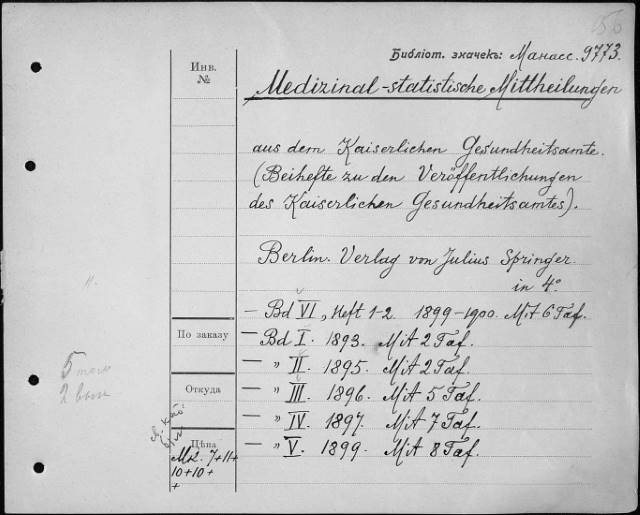 56
Библіот. значекъ: Манасс. 9773.
Инв.
№
Medizinal-statistische Mittheilungen
aus dem Kaiserlichen Gesundheitsamte.
(Beihefte zu den Veröffentlichungen
des Kaiserlichen Gesundheitsamtes).
Berlin. Verlag von Julius Springer.
in 4°
— Bd VI, Heft 1-2 1899-1900. Mit 6 Taf.
По заказу
— Bd I. 1893. Mit 2 Taf.
— „ II. 1895. Mit 2 Taf.
5 томо
— „ III. 1896. Mit 5 Taf.
Откуда
2 вып
— „ IV. 1897. Mit 7 Taf.
— „ V. 1899. Mit 8 Taf.
Цѣна
Mk. 7+11+
10+10+
+